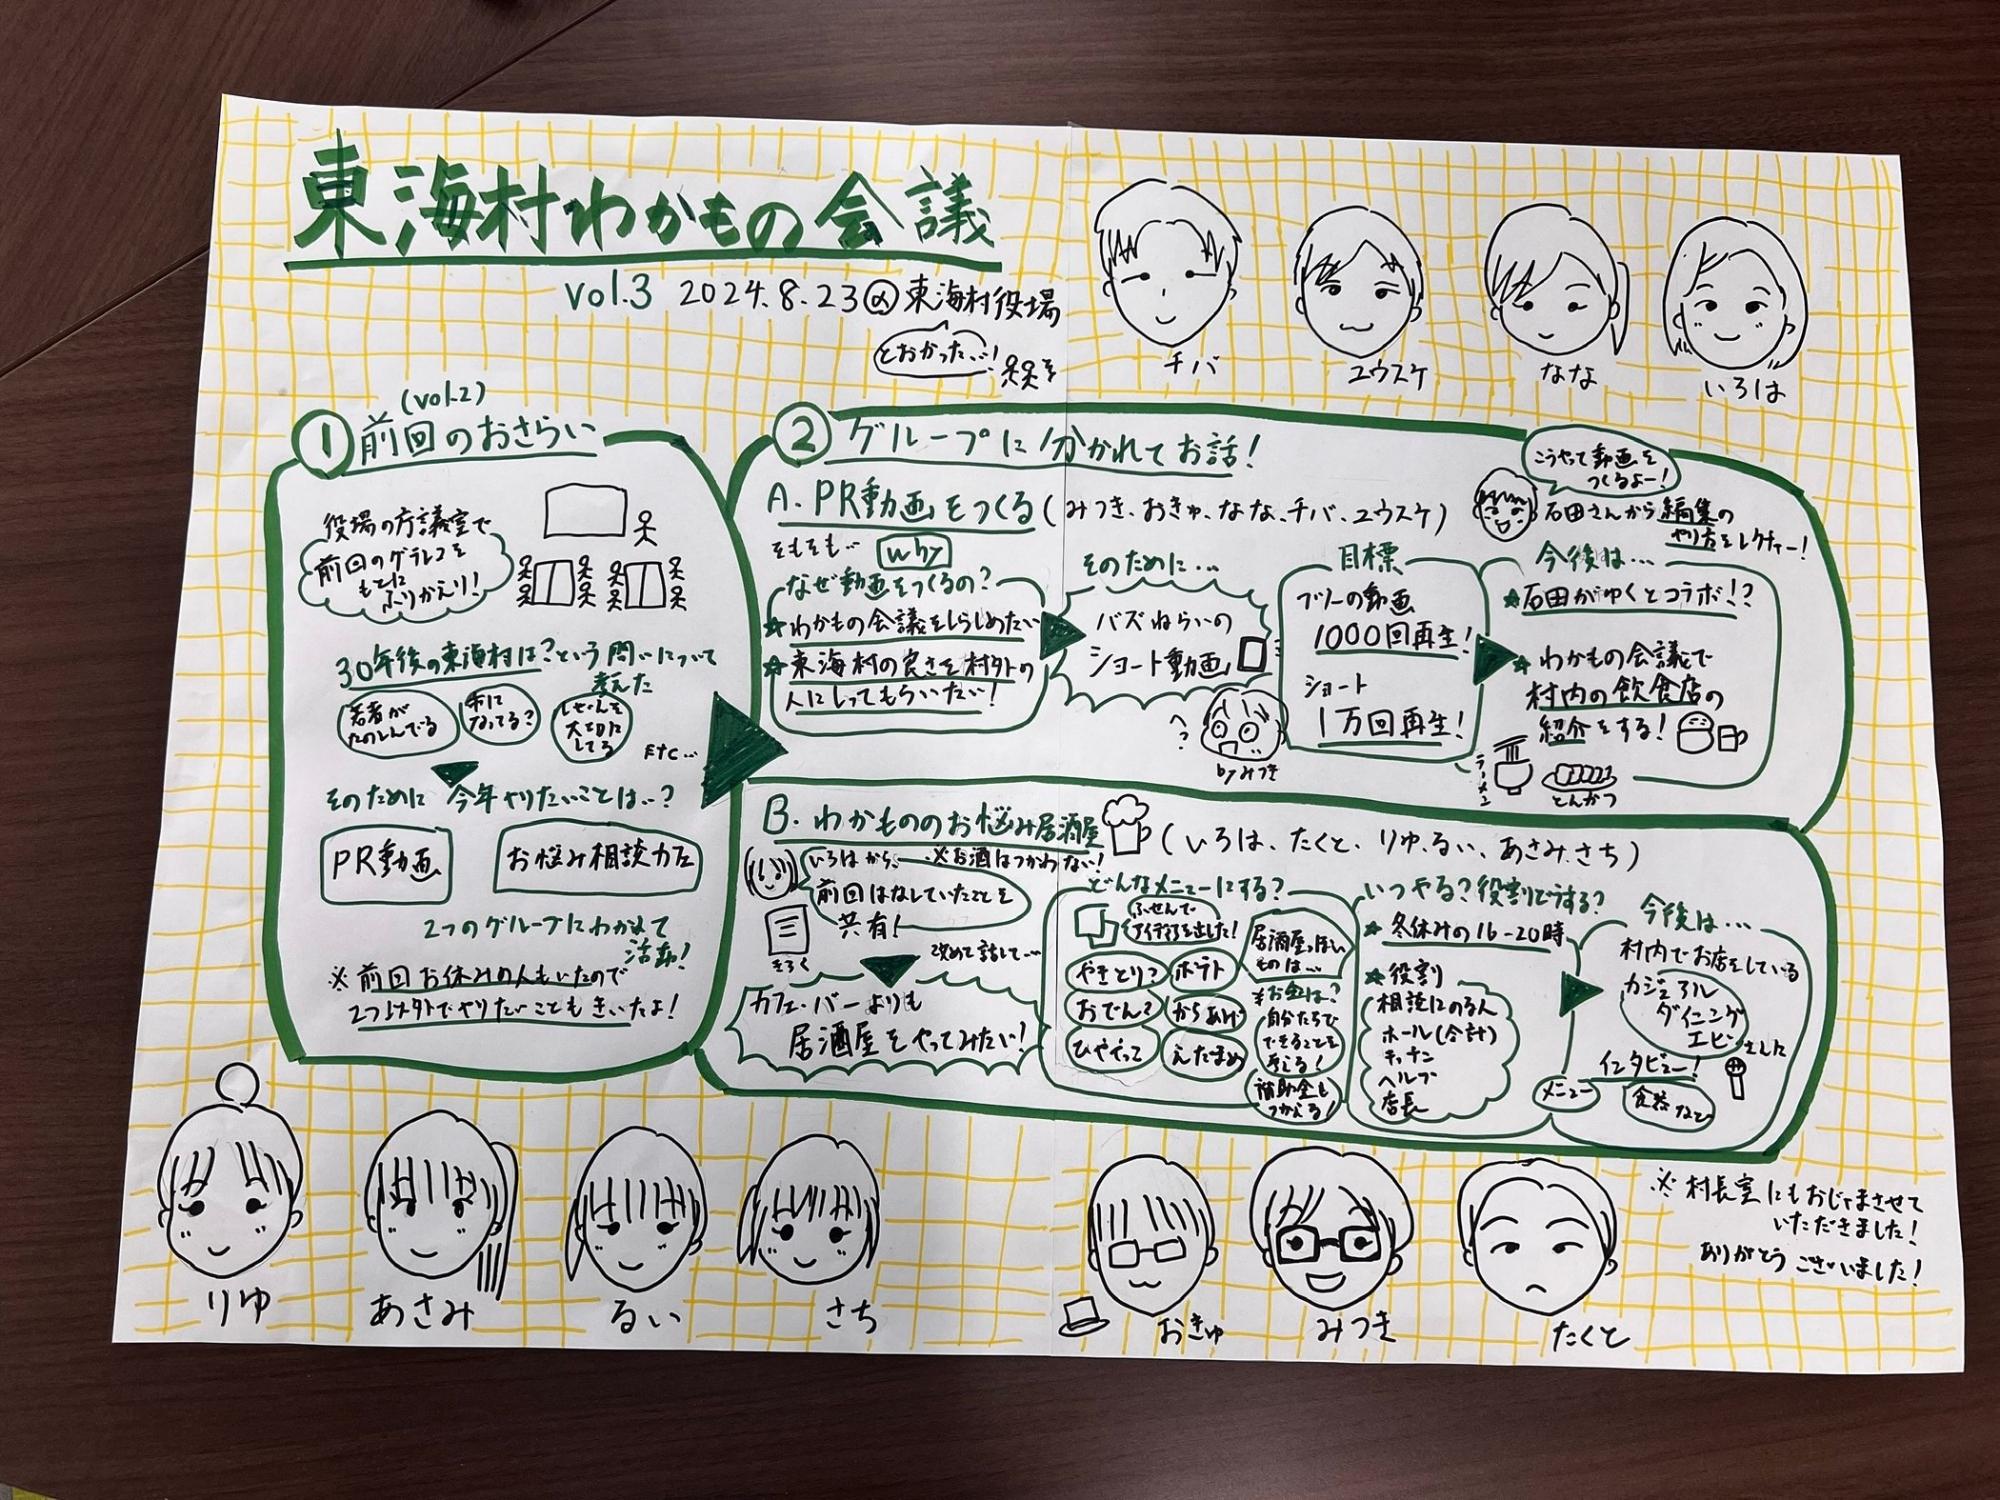 東海村わかもの会議
vol.3 2024.8.23@東海村役場
とおかった…!
チバ
ユウスケ
なな
いろは
① 前回のおさらい
(vol.2)
役場の方議室で
前回のグラレコを
もとに
ふりかえり!
30年後の東海村は?という問いについて
考えた
若者が
たのしんでる
市に
なってる?
しぜんを
大切に
してる
etc…
そのために 今年やりたいことは…?
PR動画
お悩み相談カフェ
2つのグループにわかれて
活動!
※前回お休みの人もいたので
2つ以外でやりたいこともきいたよ!
② グループに分かれてお話!
A. PR動画をつくる(みつき、おきゅ、なな、チバ、ユウスケ)
こうやって動画を
つくるよー!
石田さんから編集の
やり方をレクチャー!
そもそも… why
なぜ動画をつくるの?
★わかもの会議をしらしめたい
★東海村の良さを村外の
人にしってもらいたい!
そのために…
バズねらいの
ショート動画
byみつき
目標
フツーの動画
1000回再生!
ショート
1万回再生!
今後は…
★石田がゆくとコラボ!?
★わかもの会議で
村内の飲食店の
紹介をする!
ラーメン
とんかつ
B. わかもののお悩み居酒屋(いろは、たくと、りゅ、るい、あさみ、さち)
※お酒はつかわない!
いろはから、
前回はなしていたことを
共有!
きろく
改めて話して…
カフェ・バーよりも
居酒屋をやってみたい!
どんなメニューにする?
ふせんで
アイデアを出した!
やきとり?
ポテト
おでん?
からあげ
ひややっこ
えだまめ
居酒屋っぽい
ものは…
¥お金は?
自分たちで
できることを
考える!
補助金も
つかえる!
いつやる?役割どうする?
★冬休みの16-20時
★役割
相談にのる人
ホール(会計)
キッチン
ヘルプ
店長
今後は…
村内でお店をしている
カジュアル
ダイニング
エビンさんに
インタビュー!
メニュー
食器など
りゆ
あさみ
るい
さち
おきゅ
みつき
たくと
※村長室にもおじゃまさせて
いただきました!
ありがとうございました!